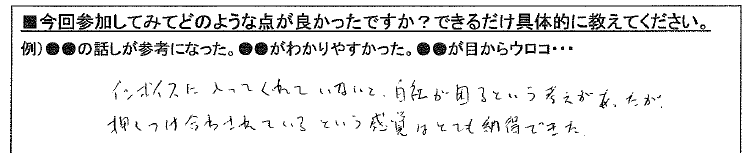 ■今回参加してみてどのような点が良かったですか？できるだけ具体的に教えてください。
例）●●の話しが参考になった。●●がわかりやすかった。●●が目からウロコ・・・
インボイスに入ってくれていないと、自社が困るという考えがあったが、
押しつけ合わされているという感覚はとても納得できた。